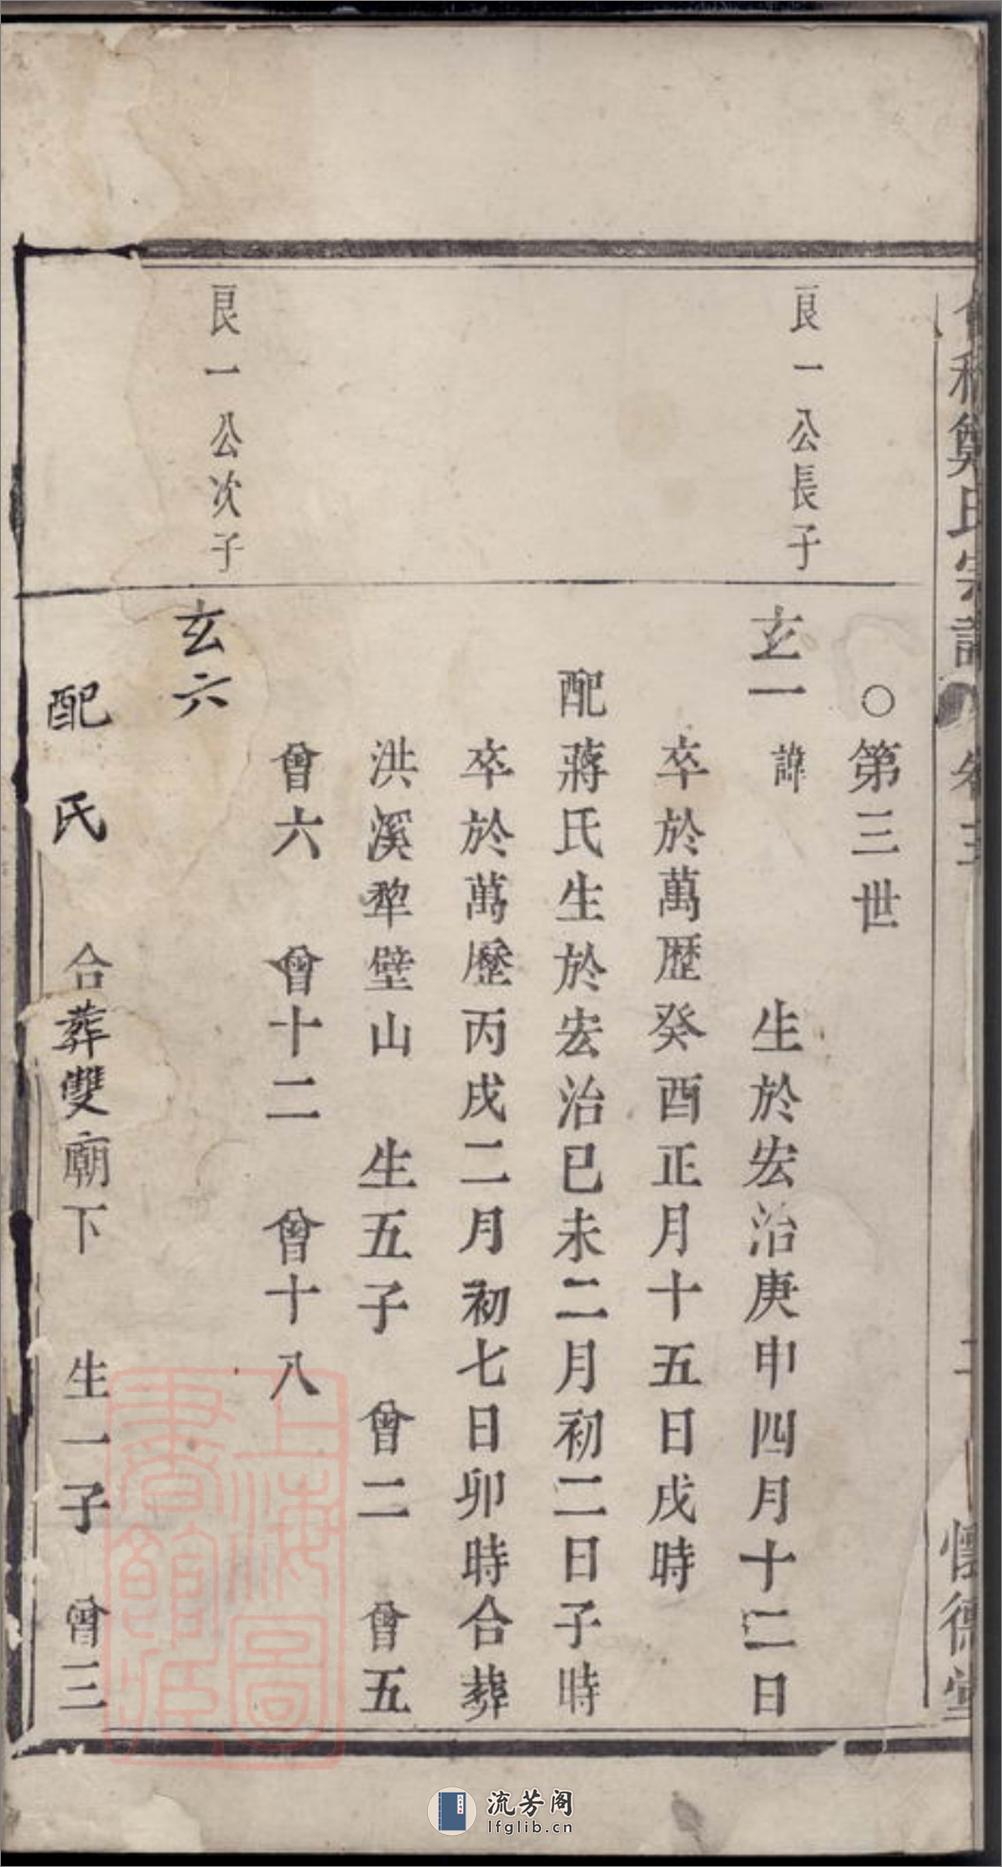 鄭氏宗譜 卷三 懷德堂
○第三世
良一公長子
玄一 諱 生於宏治庚申四月十二日
卒於萬歷癸酉正月十五日戌時
配蔣氏生於宏治已未二月初二日子時
卒於萬歷丙戌二月初七日卯時合葬
洪溪犂壁山 生五子 曾二 曾五
曾六 曾十二 曾十八
良一公次子
玄六
配 氏 合葬雙廟下 生一子 曾三
上海圖書館藏
流芳阁
lfglib.cn